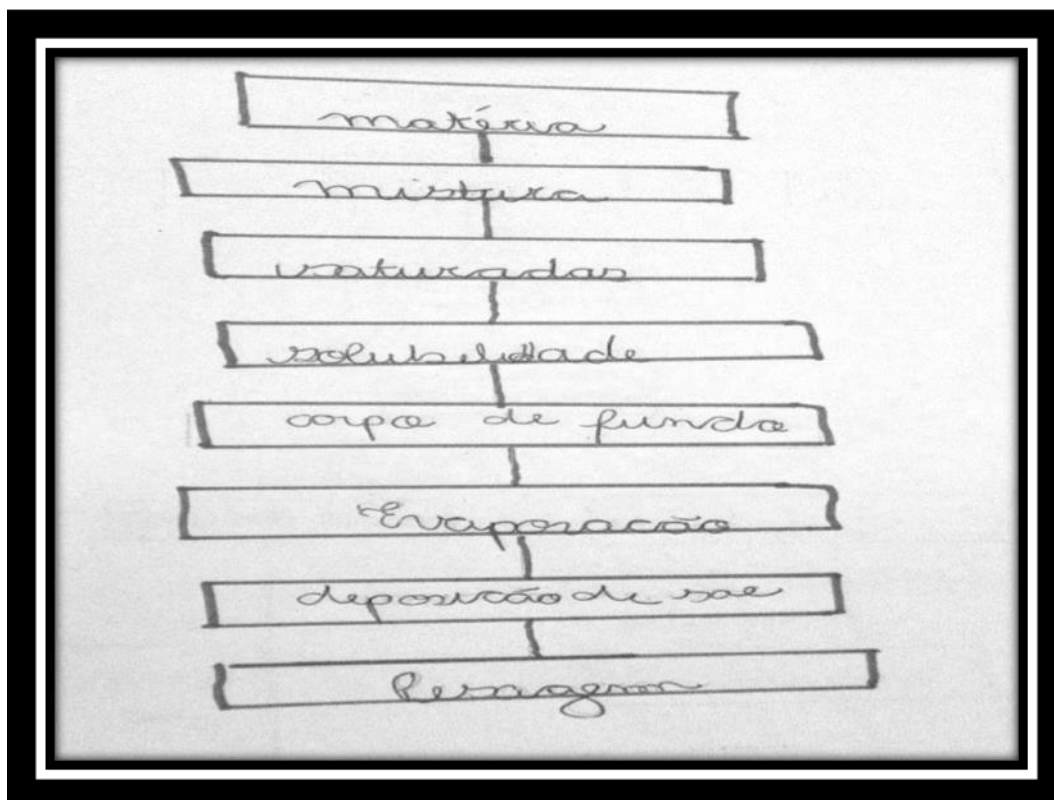 matéria
mistura
saturadas
solubilidade
corpo de fundo
Evaporacão
deposicão de sal
Pesagem